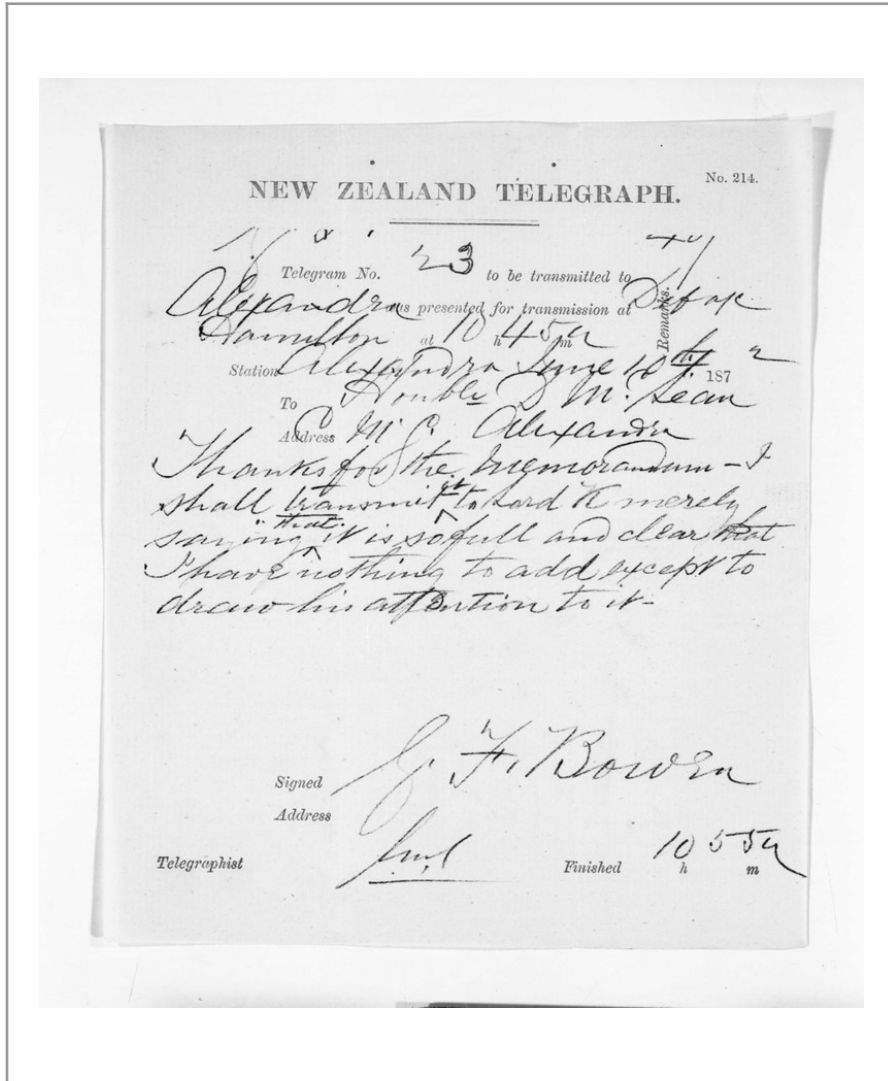 No. 214.
NEW ZEALAND TELEGRAPH.
Telegram No. 23 to be transmitted to
Alexandra was presented for transmission at
Hamilton at 10 h 45 m
Remarks.
Station Alexandra June 18th 1872
To Honble D McLean
Address M C Alexandra
Thanks for the memorandum - I
shall transmit it to Lord K merely
saying "that" it is so full and clear that
I have nothing to add except to
draw his attention to it -
Signed G. F. Bowen
Address
Telegraphist Finished 10 h 55 m